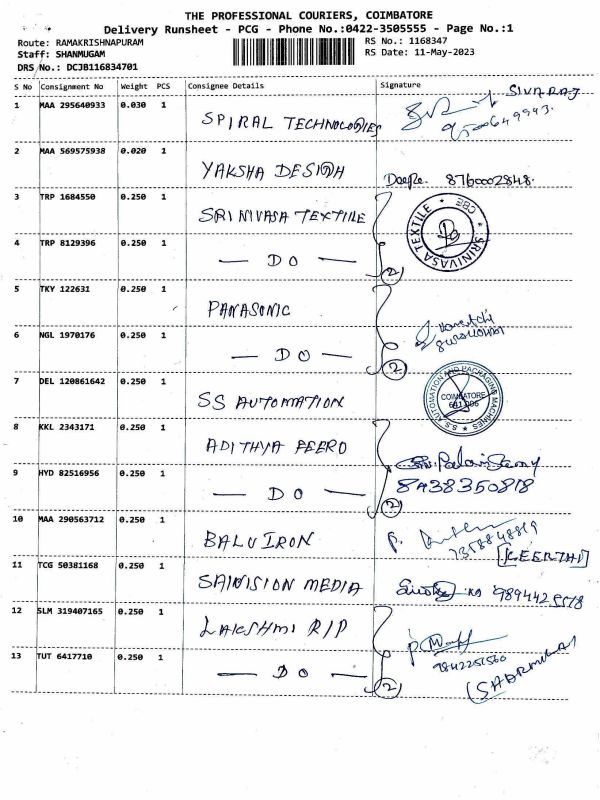 THE PROFESSIONAL COURIERS, COIMBATORE
Delivery Runsheet - PCG - Phone No.:0422-3505555 - Page No.:1
Route: RAMAKRISHNAPURAM RS No.: 1168347
Staff: SHANMUGAM RS Date: 11-May-2023
DRS No.: DCJB116834701
S No Consignment No Weight PCS Consignee Details Signature
1 MAA 295640933 0.030 1 SPIRAL TECHNOLOGIES SIVARAJ
2 MAA 569575938 0.020 1 YAKSHA DESIGN 8760002848.
3 TRP 1684550 0.250 1 SRINIVASA TEXTILE
SRINIVASA TEXTILE CBE
4 TRP 8129396 0.250 1 — DO — 2
5 TKY 122631 0.250 1 PANASONIC
6 NGL 1970176 0.250 1 — DO — 2
7 DEL 120861642 0.250 1 SS AUTOMATION
S.S. AUTOMATION AND PACKAGING MACHINES COIMBATORE 641 006
8 KKL 2343171 0.250 1 ADITHYA FERRO
9 HYD 82516956 0.250 1 — DO — 2 8438350818
10 MAA 290563712 0.250 1 BALU IRON 7358848819 [KEERTHI]
11 TCG 50381168 0.250 1 SAIVISION MEDIA
12 SLM 319407165 0.250 1 LAKSHMI RIP
13 TUT 6417710 0.250 1 — DO — 2 9842251560